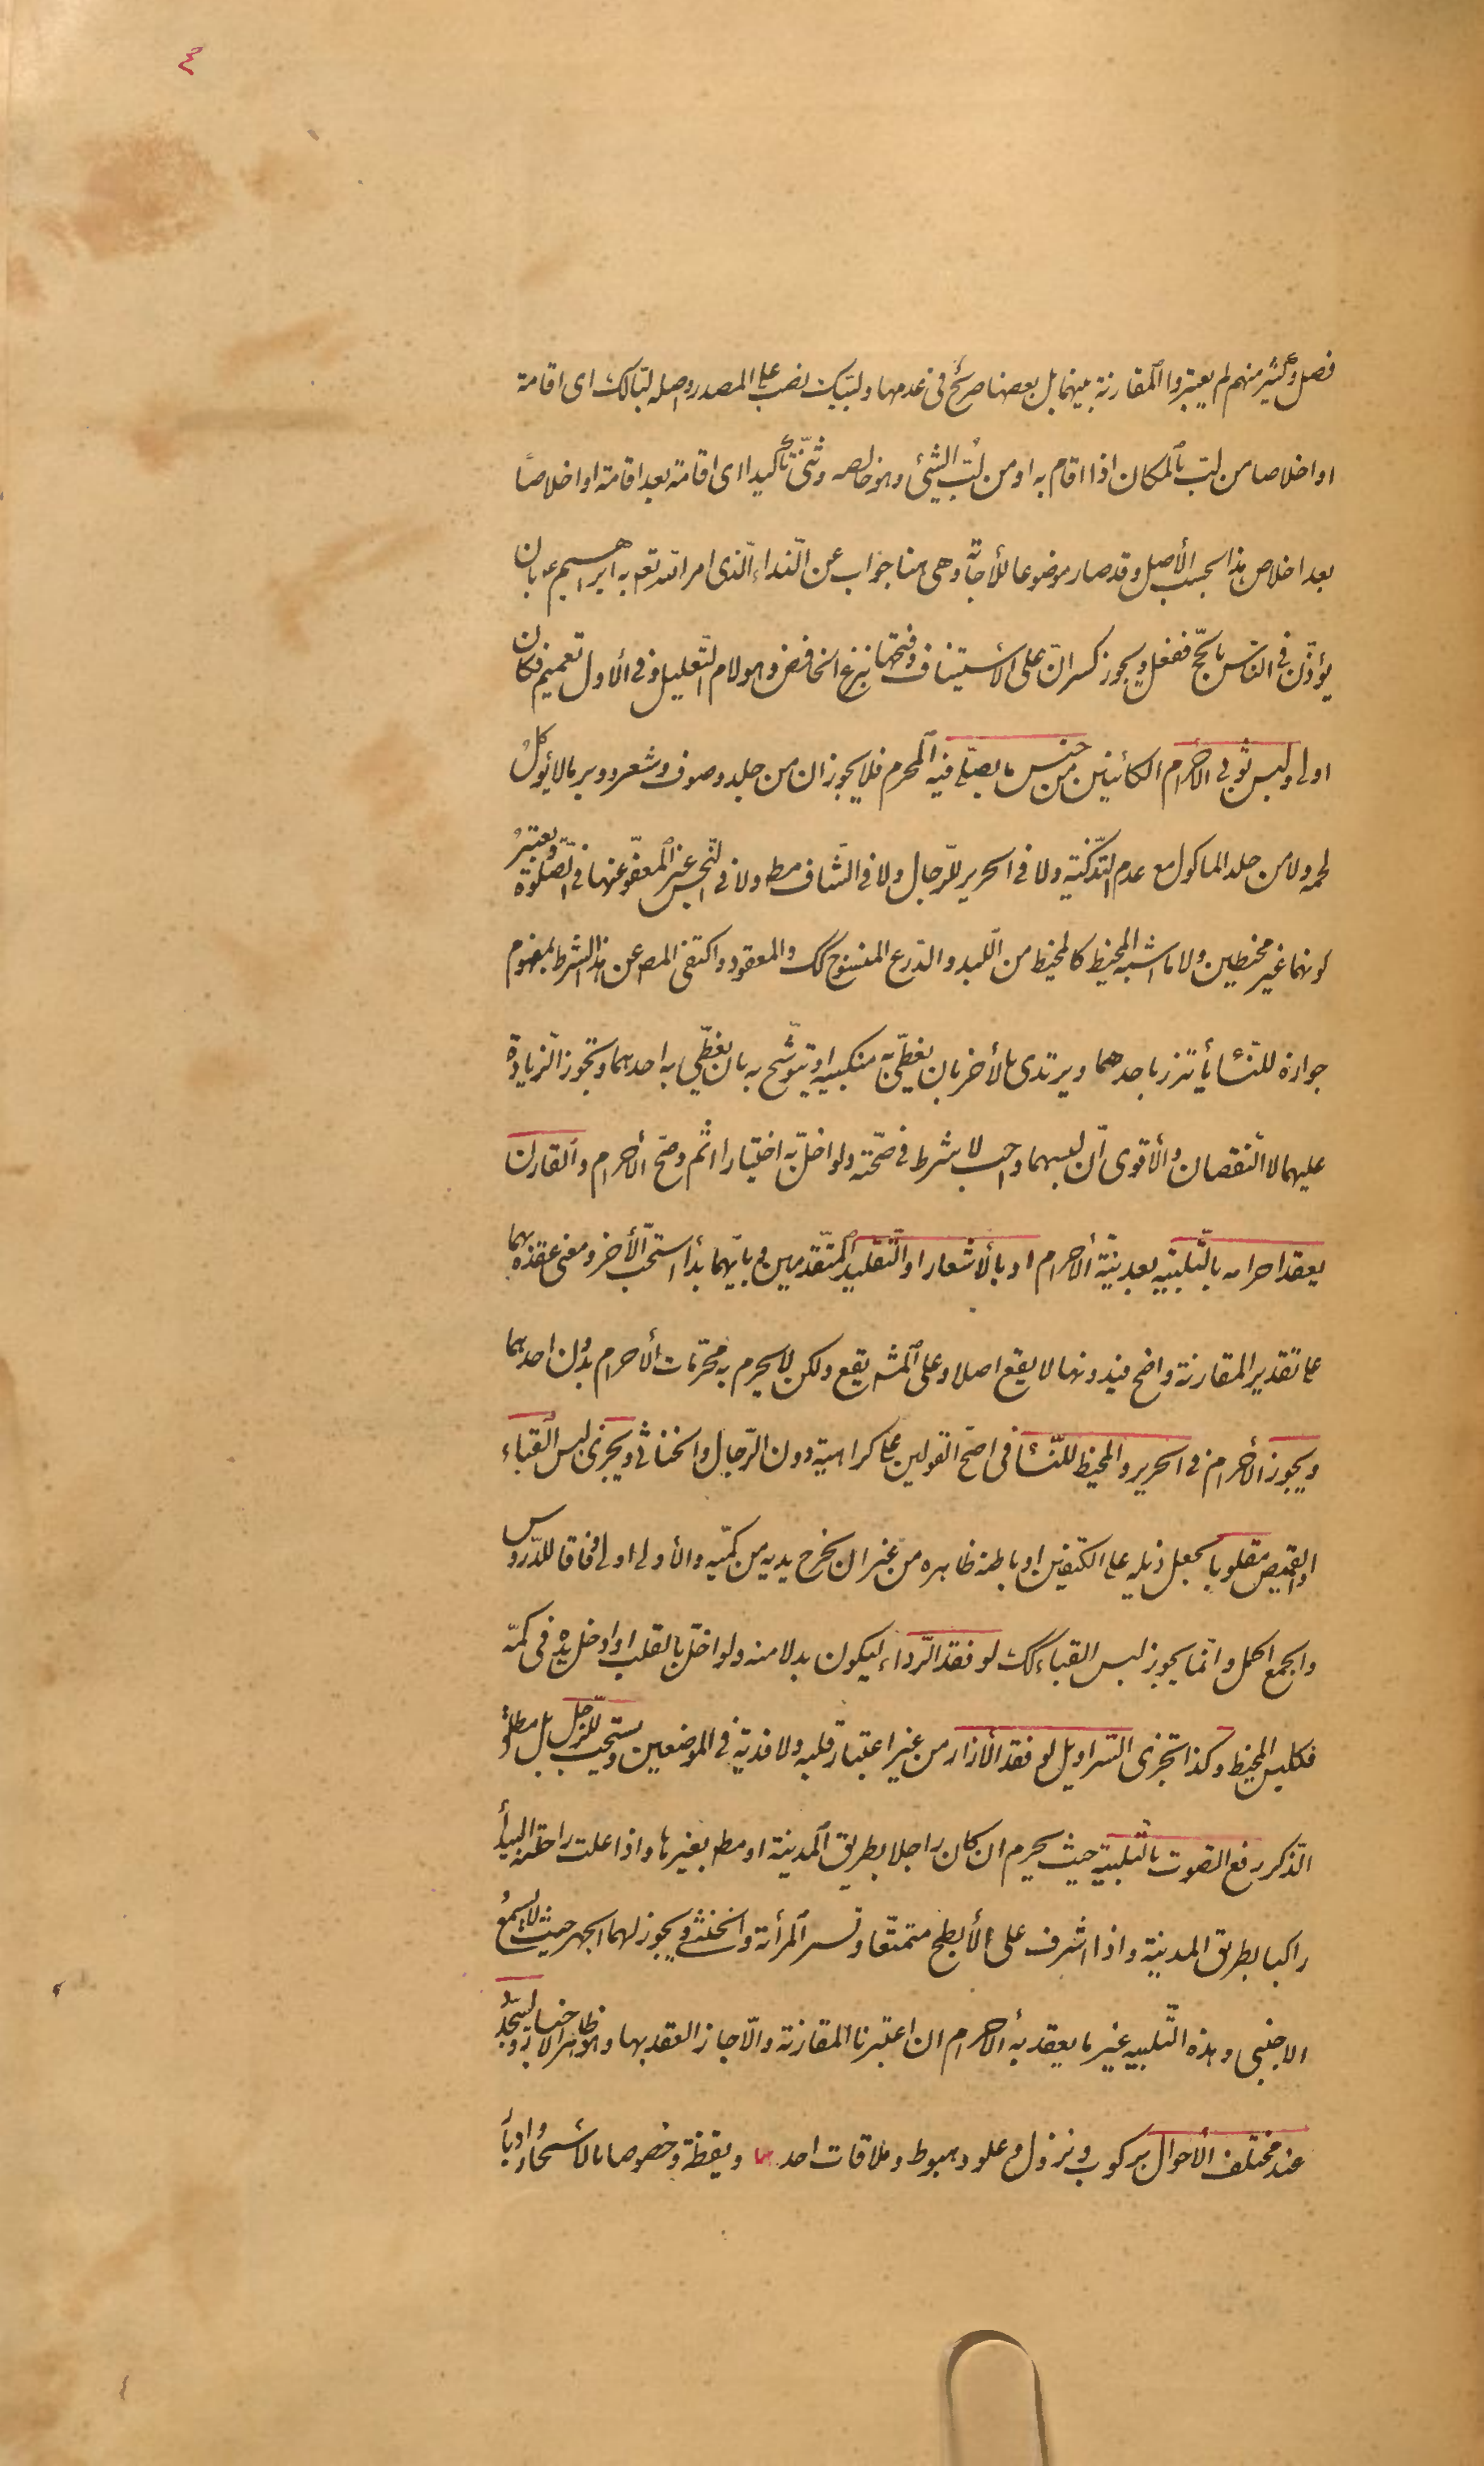 ٤
فصل وكثير منهم لم يعتبروا المقارنة بينهما بل بعضها صريح فى عدمها ولبيك نصب على المصدر واصله لبالك اى اقامة
او اخلاصا من لب بالمكان اذا اقام به او من لب الشئ وهو خالصه وثنى تأكيدا اى اقامة بعد اقامة او اخلاصا
بعد اخلاص هذا بحسب الأصل وقد صار موضوعا للأجابة وهى هنا جواب عن النداء الذى امر الله تعم به ابراهيم ع بان
يؤذن فى الناس بالحج ففعل ويجوز كسر ان على الأستيناف وفتحها بنزع الخافض وهو لام التعليل وفى الاول تعميم فكان
اولى ولبس ثوبى الأحرام الكائنين من جنس ما يصلى فيه المحرم فلا يجوز ان من جلد وصوف وشعر ووبر مالا يؤكل
لحمه ولا من جلد الماكول مع عدم التذكية ولا فى الحرير للرجال ولا فى الشاف مط ولا فى النجس غير المعفو عنها فى الصلوة ويعتبر
كونهما غير مخيطين ولا ما اشبه المخيط كالمخيط من اللبد والدرع المنسوج كك والمعقود واكتفى المص عن هذا الشرط بمفهوم
جوازه للنساء يأتزر باحدهما ويرتدى بالأخر بان يغطى به منكبيه او يتوشح به بان يغطى به احدهما وتجوز الزيادة
عليهما لا النقصان والأقوى ان لبسهما واجب لا شرط فى صحته ولو اخل به اختيارا اثم وصح الأحرام والقارن
يعقد احرامه بالتلبية بعد نية الأحرام او بالأشعار او التقليد المتقدمين وبايهما بدأ استحب الأخر ومعنى عقده بهما
على تقدير المقارنة واضح فبدونهما لا يقع اصلا وعلى المشه يقع ولكن لا يحرم به محرمات الأحرام بدون احدهما
ويجوز الأحرام فى الحرير والمخيط للنساء فى اصح القولين على كراهية دون الرجال والخناثى ويجزى لبس القباء
او القميص مقلوبا بجعل ذيله على الكتفين او باطنه ظاهره من غير ان يخرج يديه من كميه والأولى اولى وفاقا للدروس
والجمع اكمل وانما يجوز لبس القباء كك لو فقد الرداء ليكون بدلا منه ولو اخل بالقلب او ادخل يده فى كمه
فكلبس المخيط وكذا تجزى السراويل لو فقد الأزار من غير اعتبار قلبه ولا فدية فى الموضعين ويستحب للرجل بل مطلق
الذكر رفع الصوت بالتلبية حيث يحرم ان كان راجلا بطريق المدينة او مط بغيرها واذا علت راحلته البيدأ
راكبا بطريق المدينة واذا اشرف على الأبطح متمتعا وتسر المرأة والخنثى ويجوز لهما الجهر حيث لا يسمع
الاجنبى وهذه التلبية غير ما يعقد به الأحرام ان اعتبرنا المقارنة والا جاز العقد بها وهو ظاهر الاخبار وليجدد
عند مختلف الأحوال بركوب ونزول وعلو وهبوط وملاقات احد ويقظة وخصوصا بالأسحار وادبار